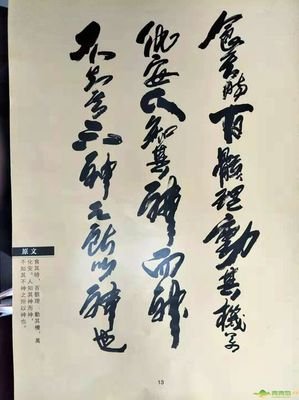 食其時百骸理動其機萬
化安人知其神而神
不知其不神之所以神也
原文
食其時，百骸理，動其機，萬
化安。人知其神而神，
不知其不神之所以神也。
13